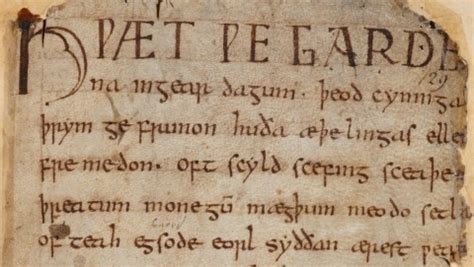 HǷÆT ǷE GARDE
129
na ingear dagum. þeod cyninga
þrym ge frunon huða æþelingas elle
fre medon. oft scyld scefing sceaþe
þreatum monegū mægþum meodo setla
of teah egsode eorl syððan ærest ƿea